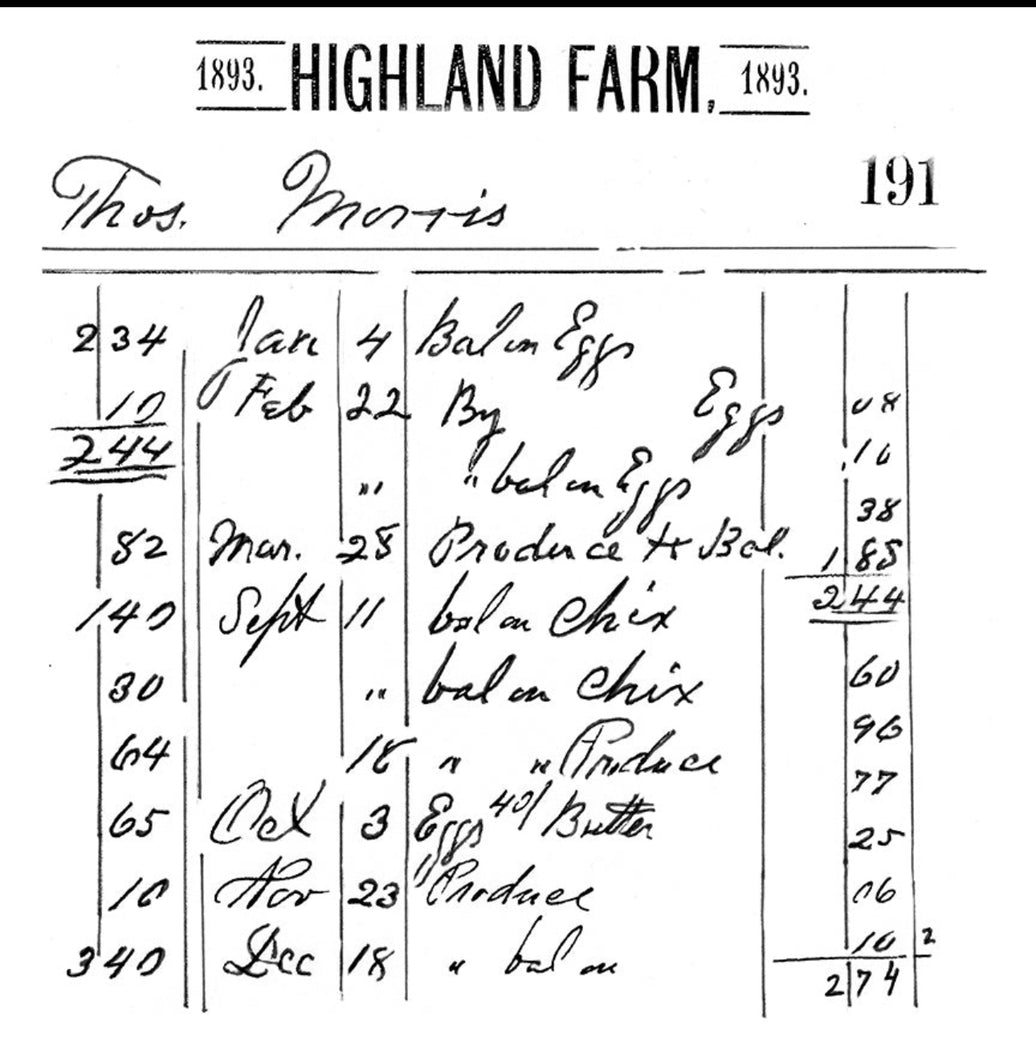 1893. HIGHLAND FARM. 1893.
Thos. Morris 191
2 34 Jan 4 Bal on Eggs
10 Feb 22 By Eggs 08
2 44 " " bal on Eggs 16
38
82 Mar. 28 Produce to Bal. 1 85
1 40 Sept 11 bal on Chix 2 44
30 " bal on Chix 60
64 18 " " Produce 96
77
65 Oct 3 Eggs 40/ Butter 25
10 Nov 23 Produce 06
3 40 Dec 18 " bal on 10 2
2 74